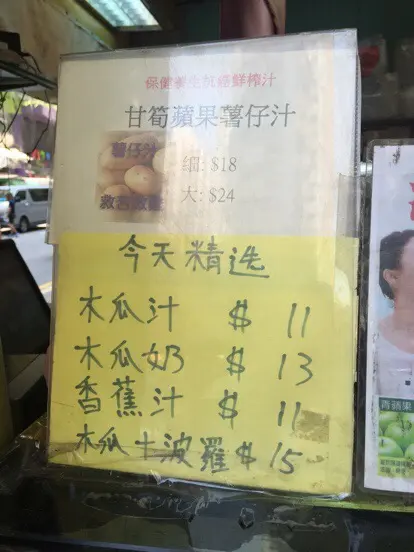 保健養生抗癌鮮榨汁
甘筍蘋果薯仔汁
薯仔汁
細: $18
大: $24
今天精选
木瓜汁 $ 11
木瓜奶 $ 13
香蕉汁 $ 11
木瓜士波羅 $ 15
青蘋果